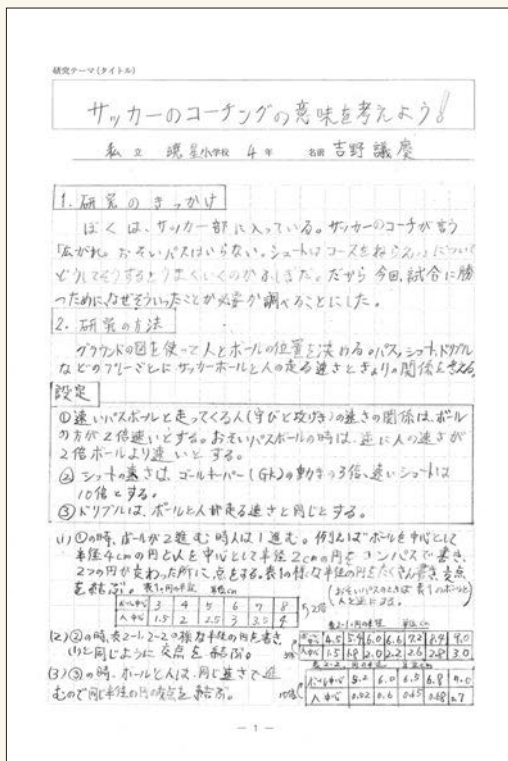 研究テーマ(タイトル)
サッカーのコーチングの意味を考えよう!
私立 暁星小学校 4年 名前 吉野 議慶
1. 研究のきっかけ
ぼくは、サッカー部に入っている。サッカーのコーチが言う
「広がれ。おそいパスはいらない。シュートはコースをねらえ。」について
どうしてそうするとうまくいくのかふしぎだ。だから今回、試合に勝
つために、なぜそういったことが必要か調べることにした。
2. 研究の方法
グラウンドの図を使って人とボールの位置を決める。パス、シュート、ドリブル
などのプレーごとにサッカーボールと人の走る速さときょりの関係を考える。
設定
①速いパスボールと走ってくる人(守びと攻げき)の速さの関係は、ボール
の方が2倍速いとする。おそいパスボールの時は、逆に人の速さが
2倍ボールより速いとする。
② シュートの速さは、ゴールキーパー(GK)の動きの3倍、速いシュートは
10倍とする。
③ドリブルは、ボールと人が走る速さと同じとする。
(1) ①の時、ボールが2進む時人は1進む。例えばボールを中心として
半径4cmの円と人を中心として半径2cmの円をコンパスで書き、
2つの円が交わった所に点をする。表1の様な半径の円をたくさん書き、交点
を結ぶ。 表1 円の半径 単位cm
(おそいパスのときは表1のボールと
人と逆にする。)
ボール中心 3 4 5 6 7 8
人中心 1.5 2 2.5 3 3.5 4
2倍
(2) ②の時、表2-1、2-2の様な半径の円を書き
(1)と同じように交点を結ぶ。
表2-1 円の半径 単位cm
ボール中心 4.5 5.4 6.0 6.6 7.2 8.4 9.0
人中心 1.5 1.8 2.0 2.2 2.6 2.8 3.0
3倍
表2-2 円の半径 単位cm
(3) ③の時、ボールと人は、同じ速さで進
むので同じ半径の円の交点を結ぶ。
ボール中心 5.2 6.0 6.5 6.8 7.0
人中心 0.52 0.6 0.65 0.68 0.7
10倍
― 1 ―